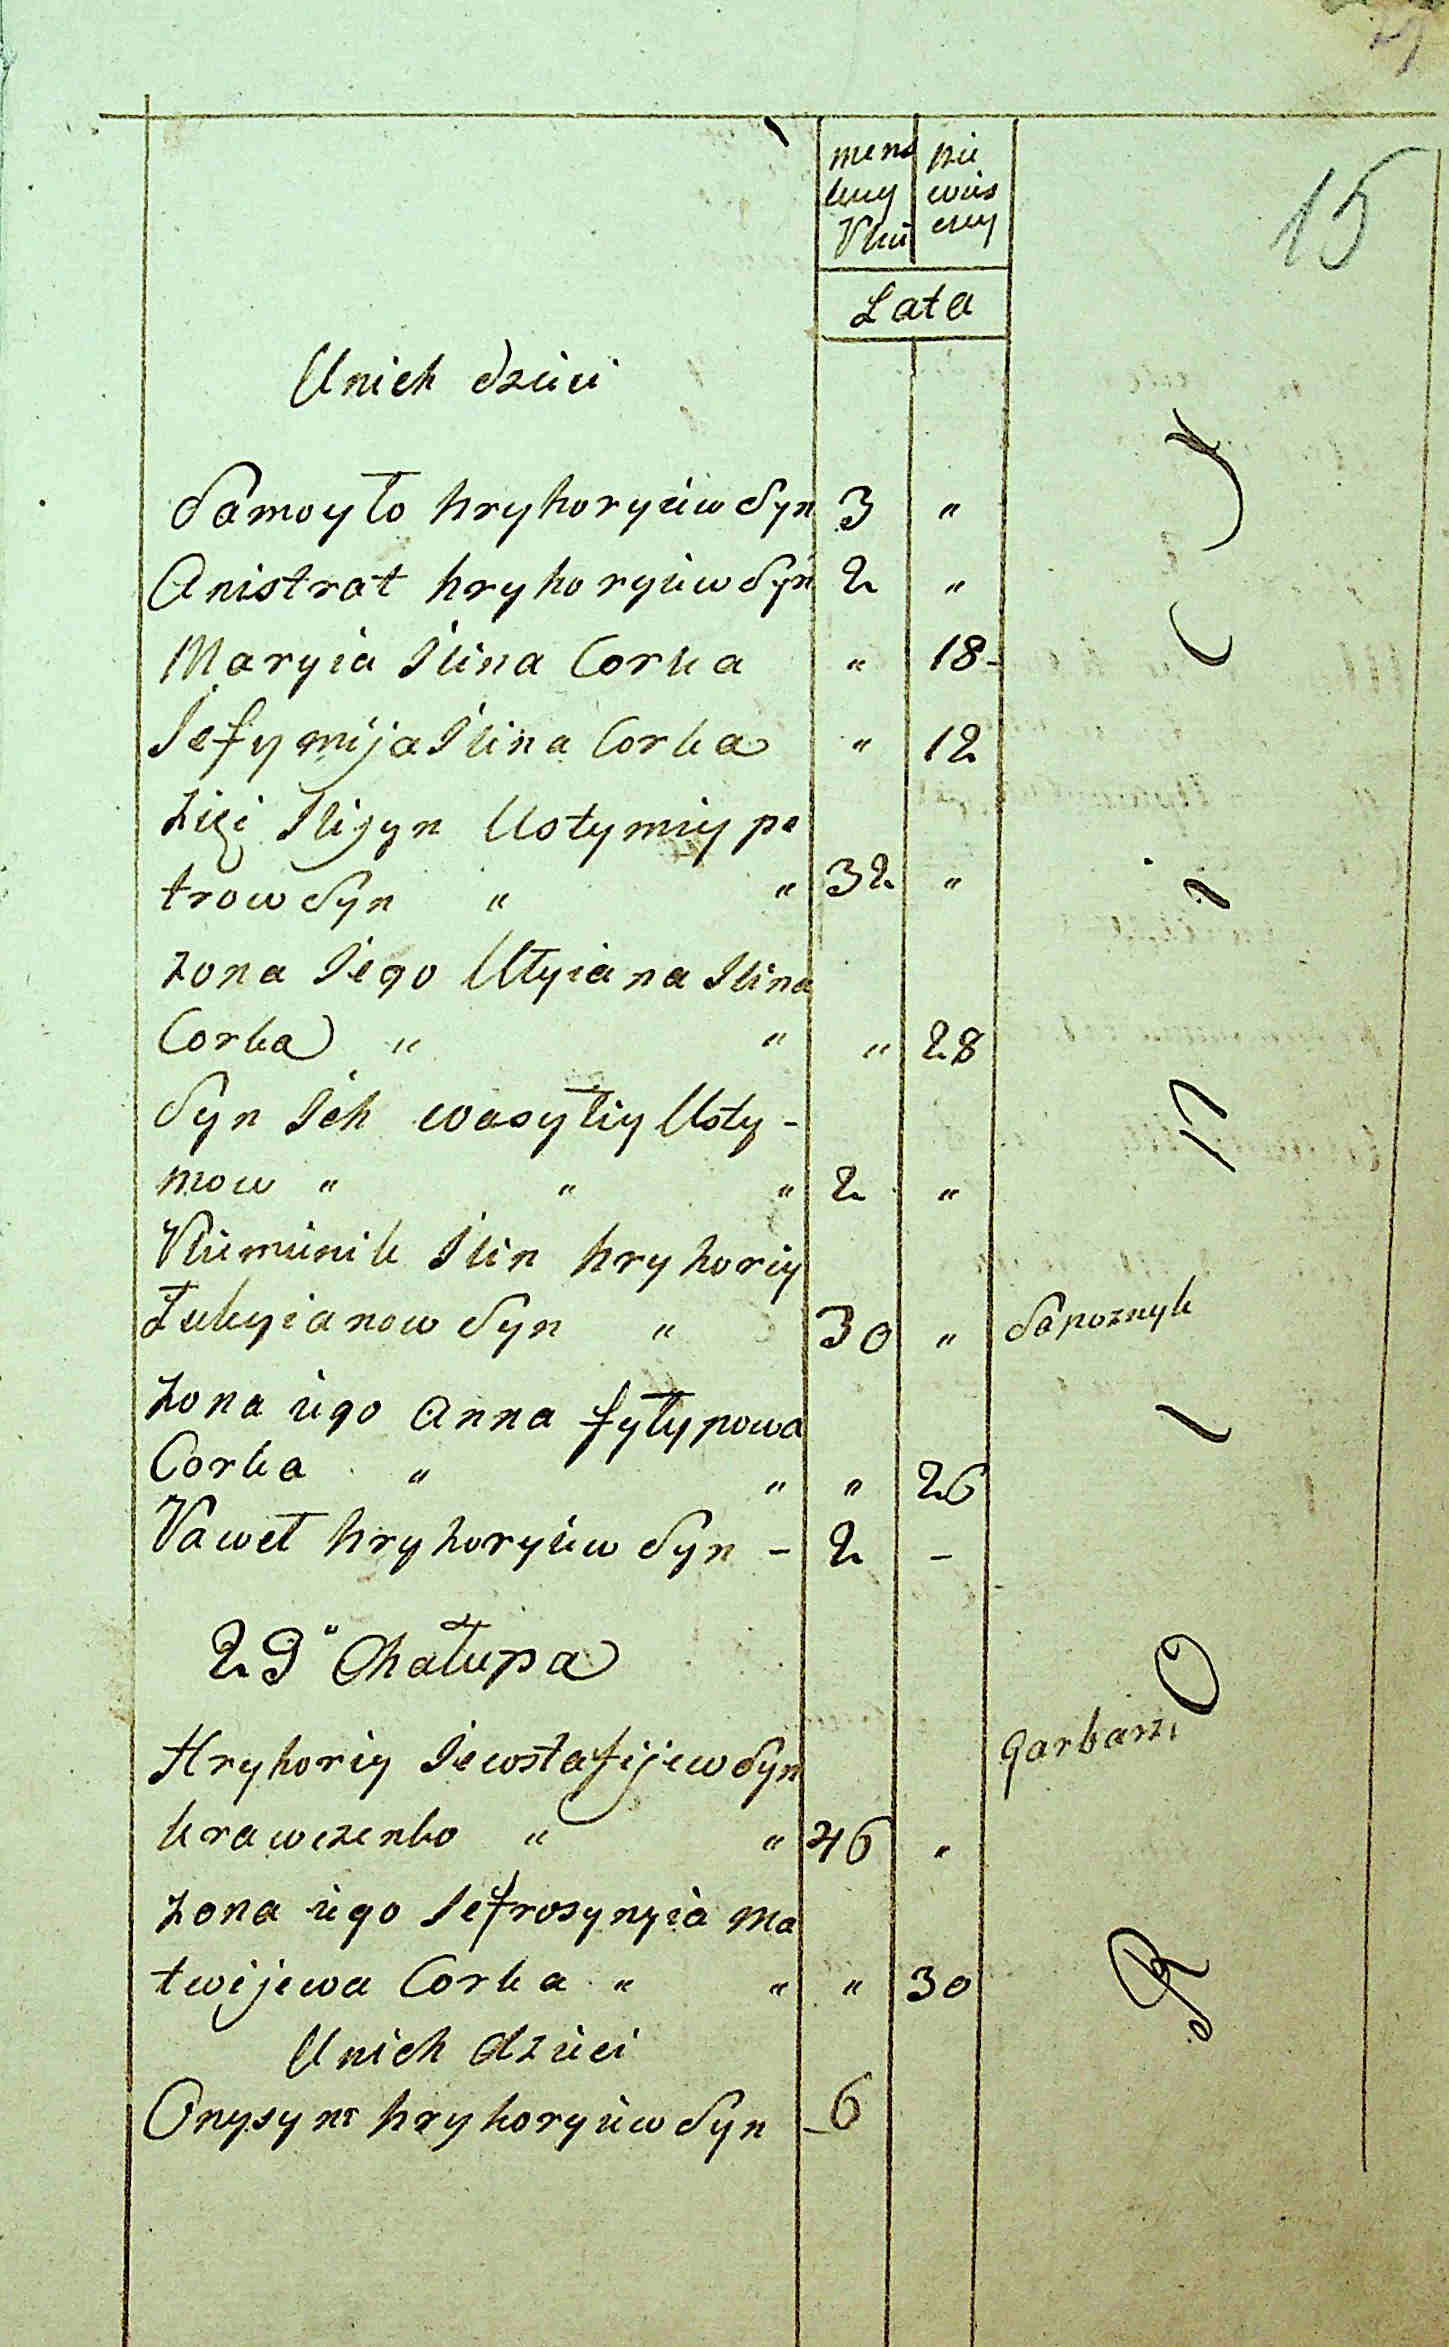 15
mens
kuy
Płeć
nie
wias
cuy
Lata
Unich dzieci
Samoyło hryhoryiew Syn 3 "
Anistrat hryhoryiew Syn 2 "
Maryia Ilina Corka " 18
Jefymija Ilina Corka " 12
Zięć Iligyn Ustymiy pe
trow Syn " " 32 "
zona Jego Ulyiana Ilina
Corka " " " 28
Syn Ich wasyliy Usty-
mow " " " 2 "
Plemienik Ilin hryhoriy
Łukyianow Syn " 30 " Sapoznyk
zona iego Anna fyłypowa
Corka " " " 26
Paweł hryhoryiew Syn - 2 -
23" Chałupa
Hryhoriy Jewstafijew Syn
krawczenko " " 46 " garbarz
zona iego Jefrosynyia Ma
twijewa Corka " " " 30
Unich dzieci
Onysym hryhoryiew Syn - 6